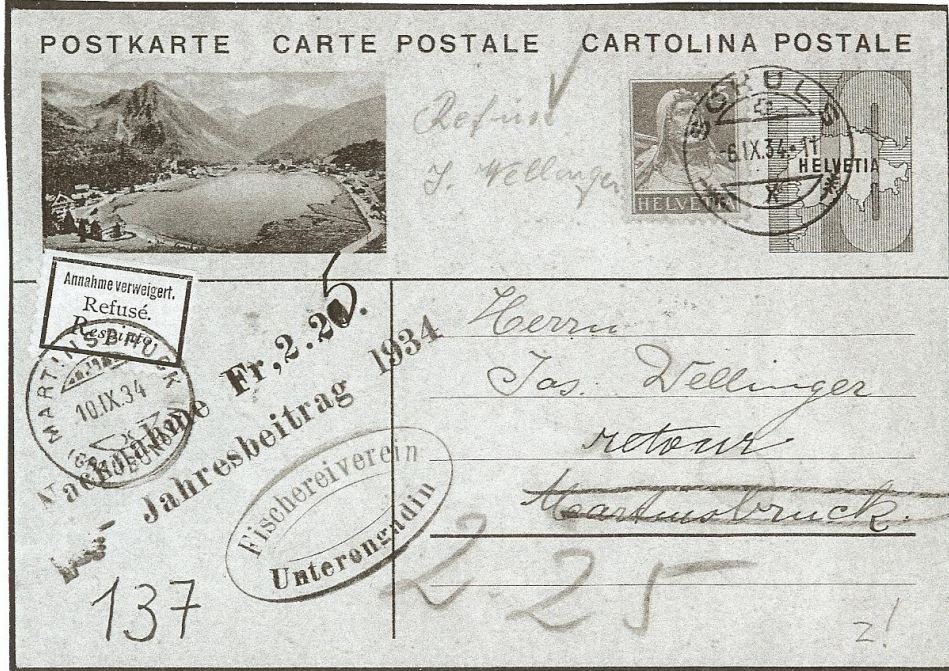 POSTKARTE CARTE POSTALE CARTOLINA POSTALE
Refusé
J. Wellinger
HELVETIA
SCHULS
-6.IX.34-11
X
HELVETIA
Annahme verweigert.
Refusé.
Respinto.
MARTINSBRUCK
10.IX.34
(GRAUBÜNDEN)
Nachnahme Fr, 2.25.
Jahresbeitrag 1934
Fischereiverein
Unterengadin
Herrn
Jos. Wellinger
retour
Martinsbruck.
2.25
137